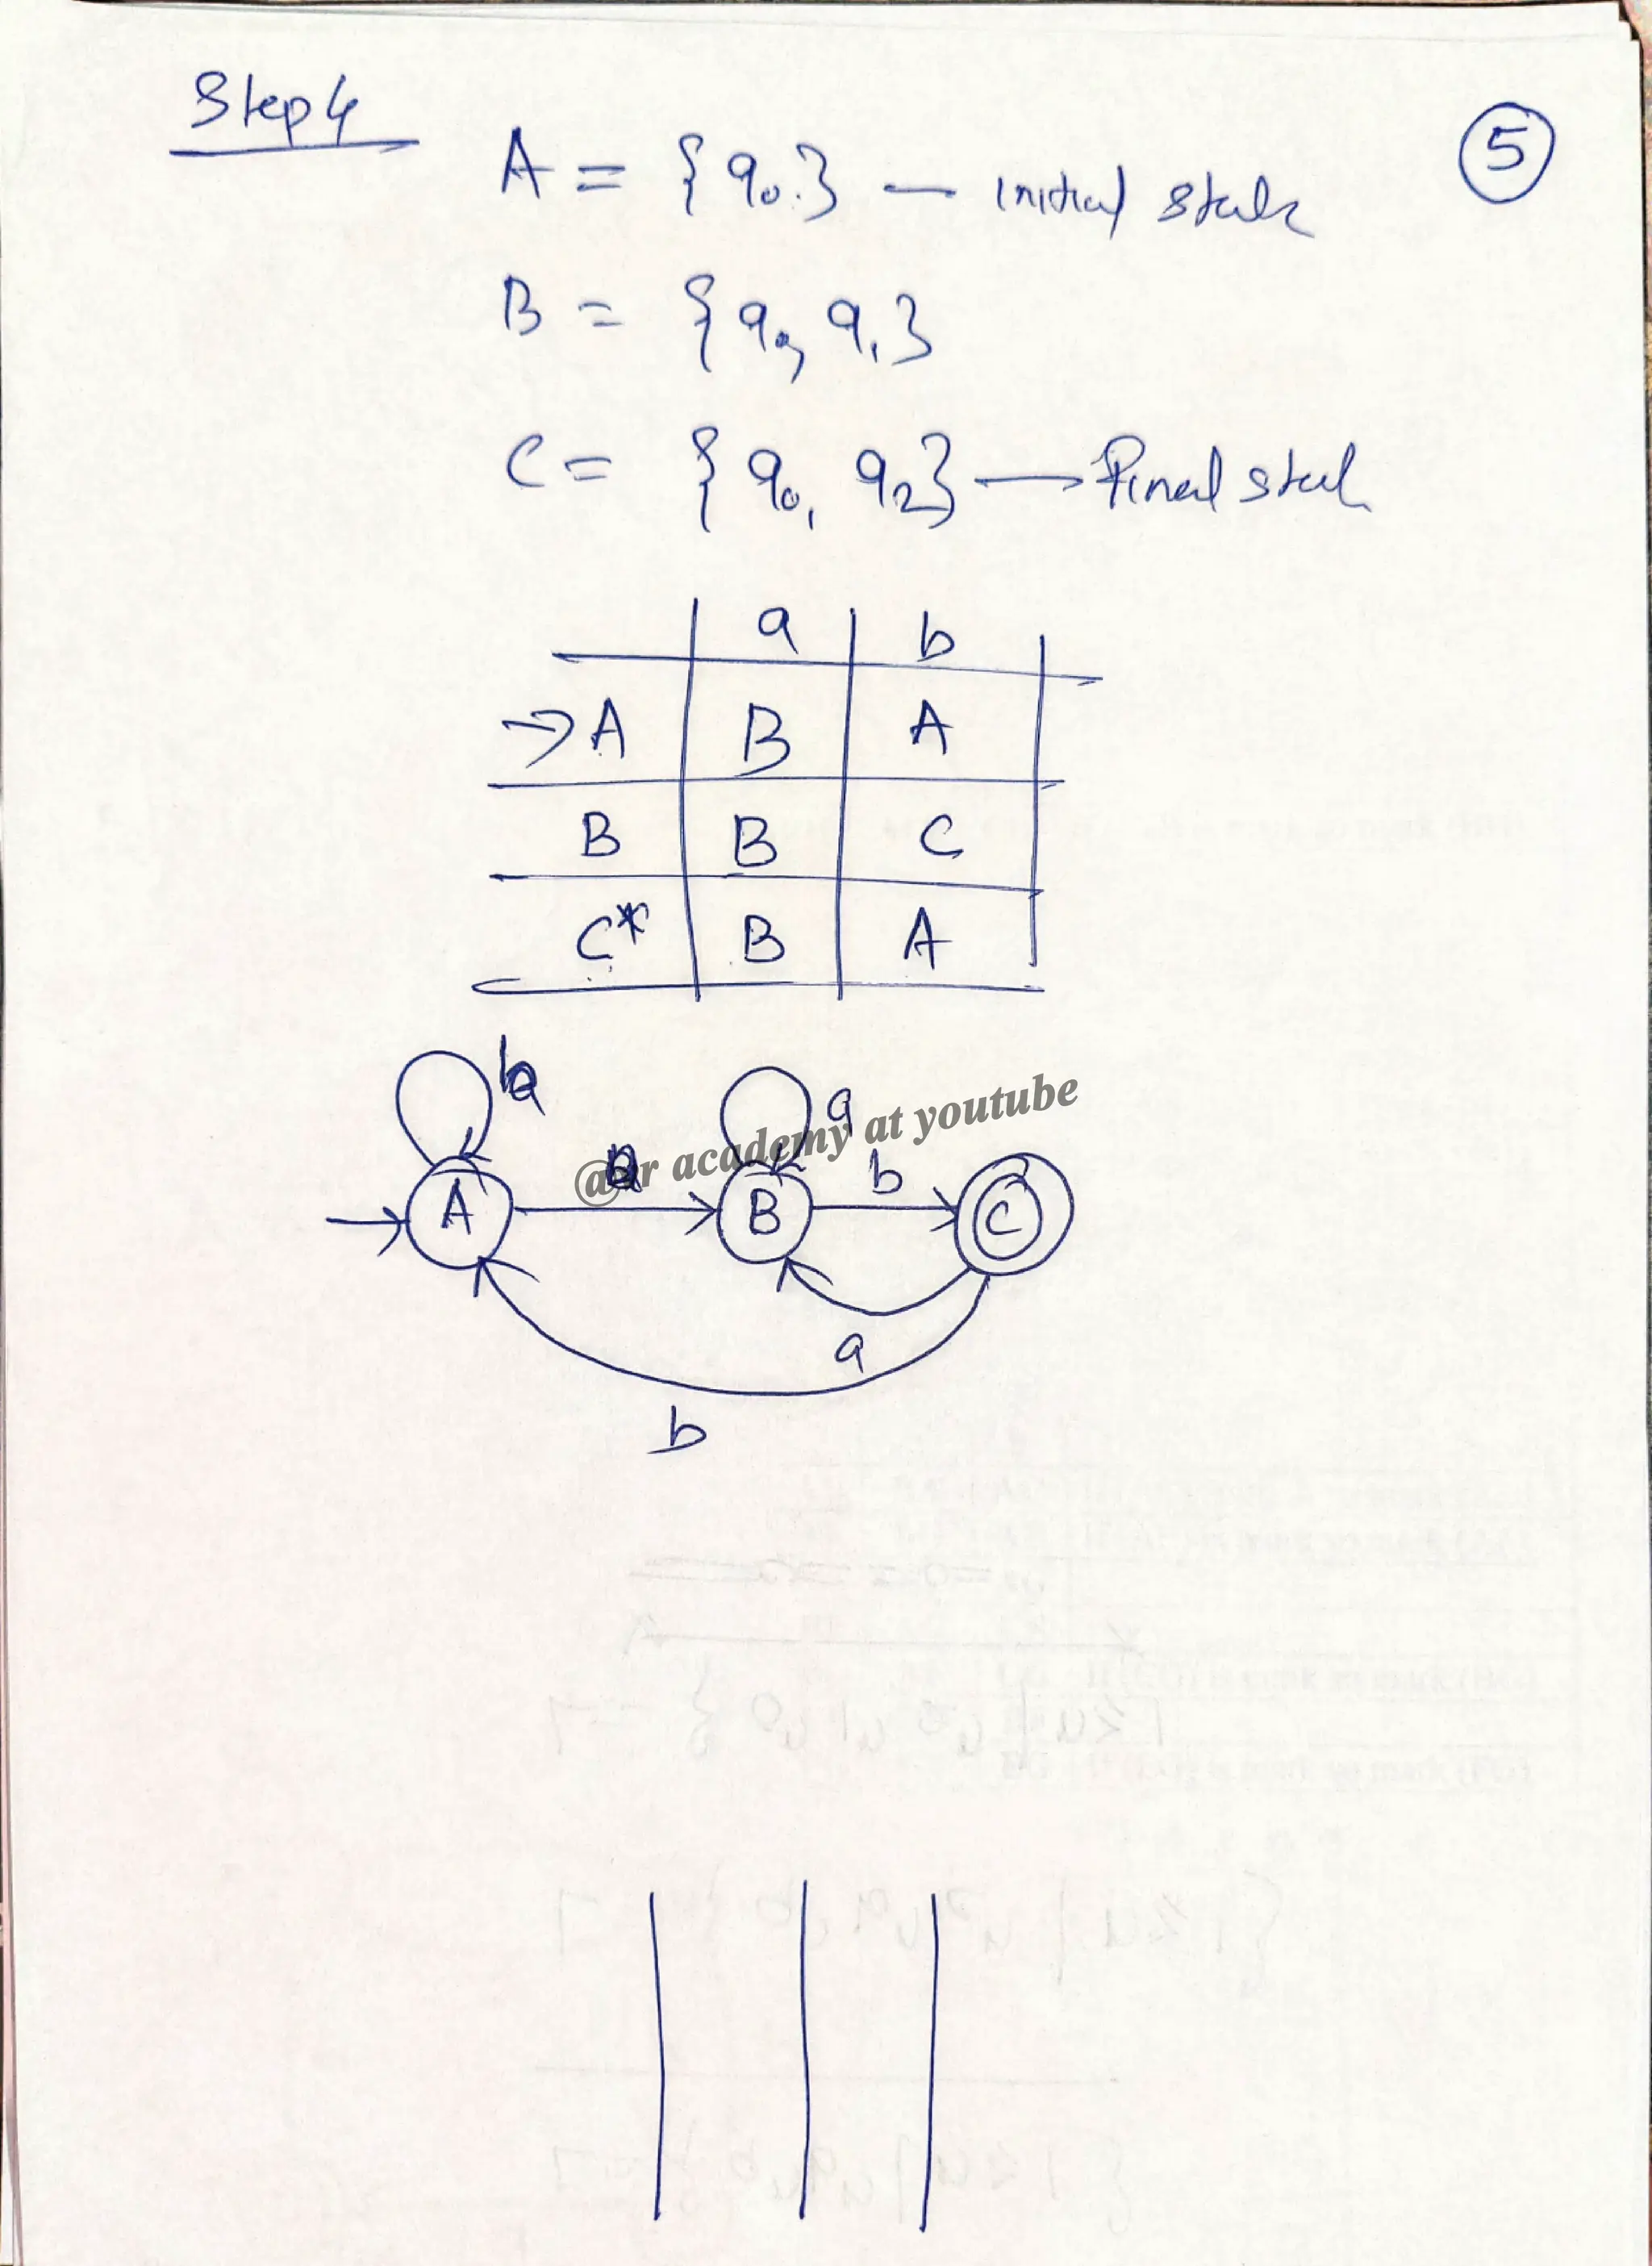 Step 4
5
A = {q0} — initial state
B = {q0, q1}
C = {q0, q2} — Final state
a b
→A B A
B B C
C* B A
b a
@ r academy at youtube
b
A B C
a
b